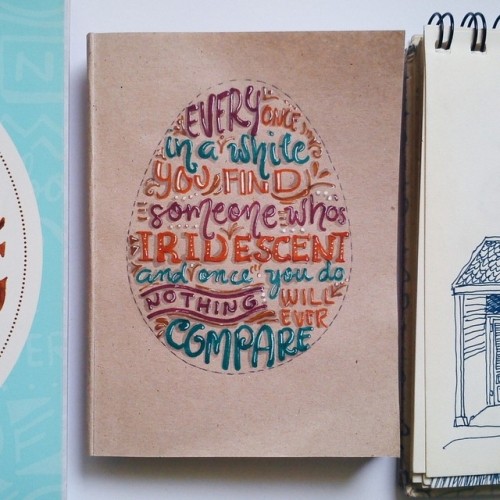 EVERY ONCE
in a while
YOU FIND
someone whos
IRIDESCENT
and once you do
NOTHING WILL
EVER
COMPARE